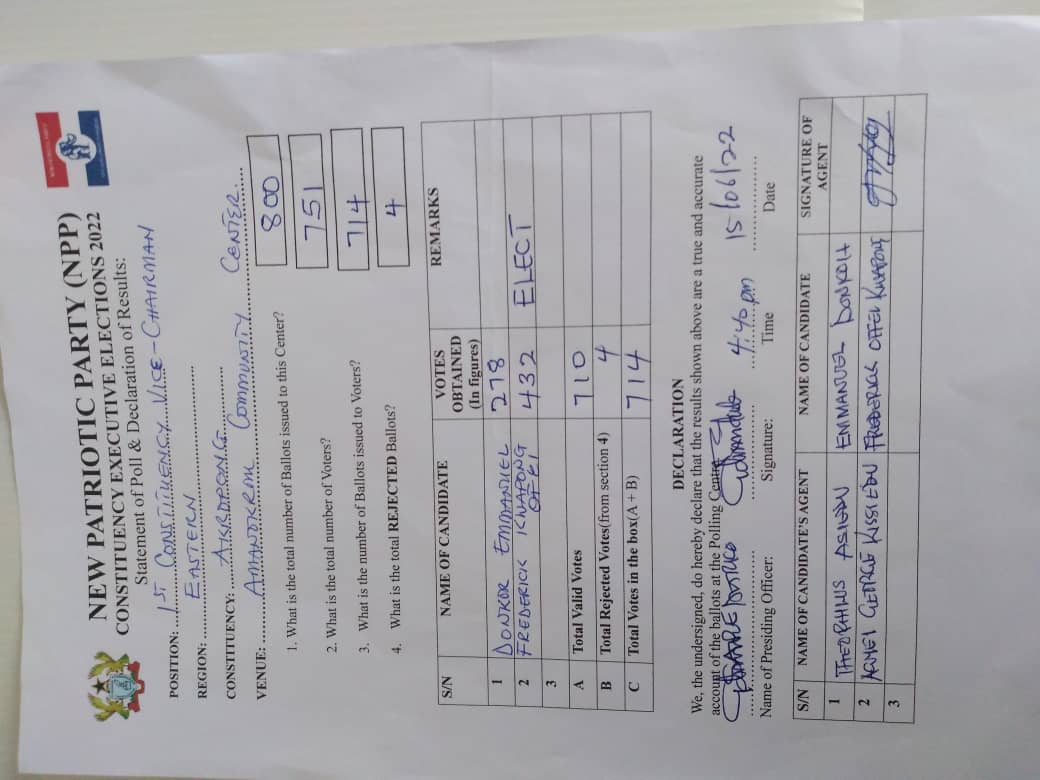 NEW PATRIOTIC PARTY (NPP)
CONSTITUENCY EXECUTIVE ELECTIONS 2022
Statement of Poll & Declaration of Results:
POSITION: 1ST CONSTITUENCY VICE-CHAIRMAN
REGION: EASTERN
CONSTITUENCY: AKROPONG
VENUE: AMANOKROM COMMUNITY CENTER.
1. What is the total number of Ballots issued to this Center? 800
2. What is the total number of Voters? 751
3. What is the number of Ballots issued to Voters? 714
4. What is the total REJECTED Ballots? 4
S/N NAME OF CANDIDATE VOTES OBTAINED (In figures) REMARKS
1 DONKOR EMMANUEL 278
2 FREDERICK KWAPONG OFEI 432 ELECT
3
A Total Valid Votes 710
B Total Rejected Votes(from section 4) 4
C Total Votes in the box(A + B) 714
DECLARATION
We, the undersigned, do hereby declare that the results shown above are a true and accurate
account of the ballots at the Polling Centre
4:40pm 15/06/22
Name of Presiding Officer: Signature: Time Date
S/N NAME OF CANDIDATE'S AGENT NAME OF CANDIDATE SIGNATURE OF AGENT
1 THEOPHILUS ASIEDU EMMANUEL DONKOH
2 GEORGE KISSIEDU FREDERICK OFFEI KWAPONG
3